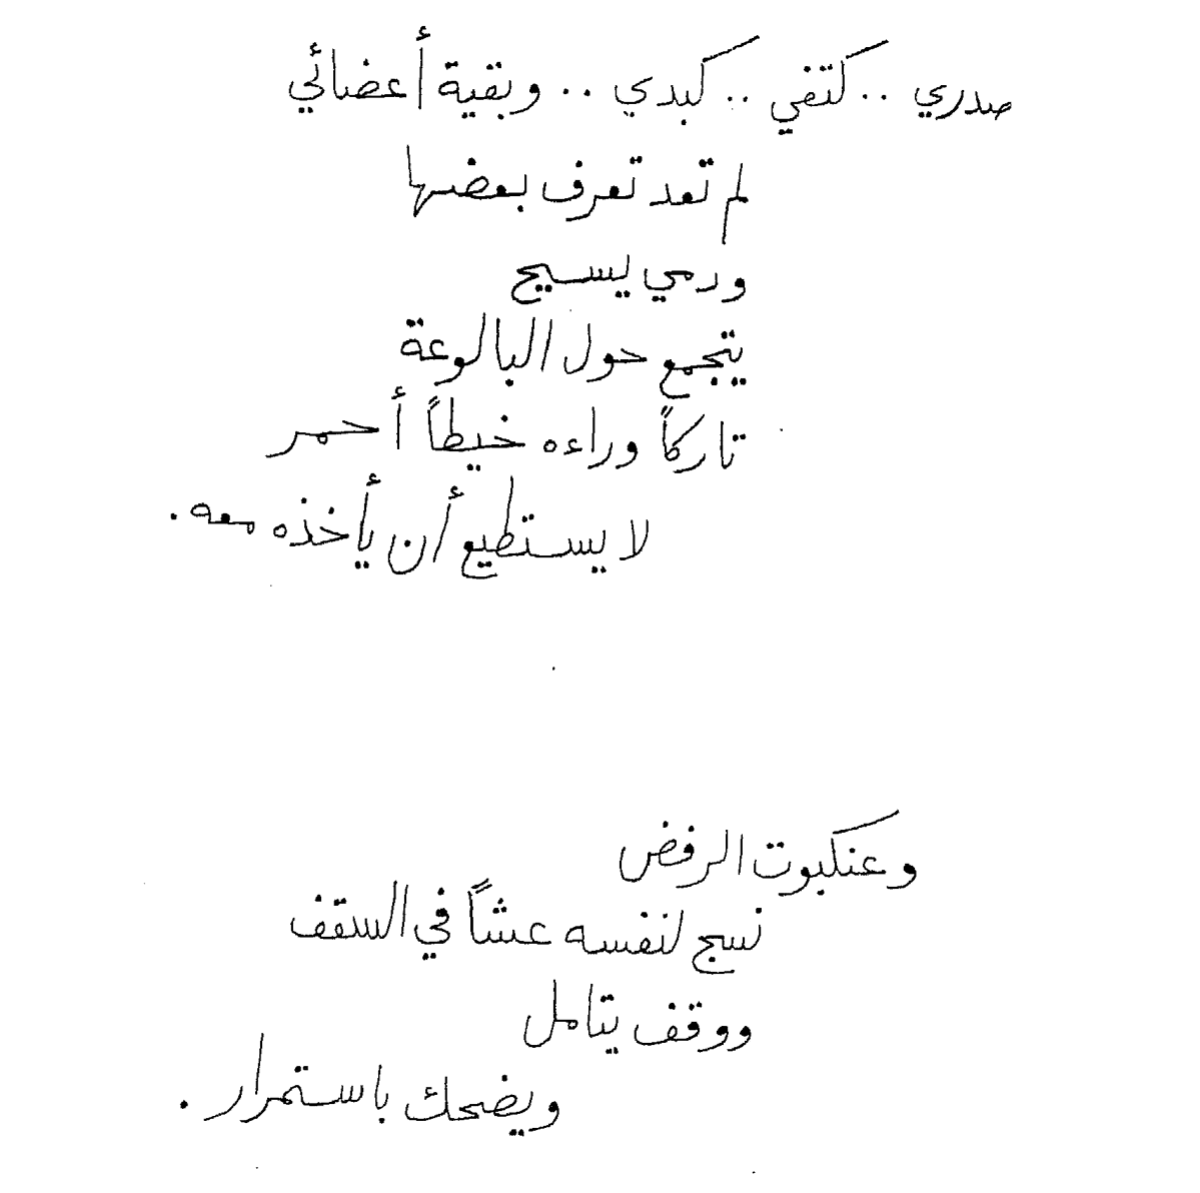 صدري .. كتفي .. كبدي .. وبقية أعضائي
لم تعد تعرف بعضها
ودمي يسيح
يتجمع حول البالوعة
تاركاً وراءه خيطاً أحمر
لا يستطيع أن يأخذه معه .
وعنكبوت الرفض
نسج لنفسه عشاً في السقف
ووقف يتامل
ويضحك باستمرار .